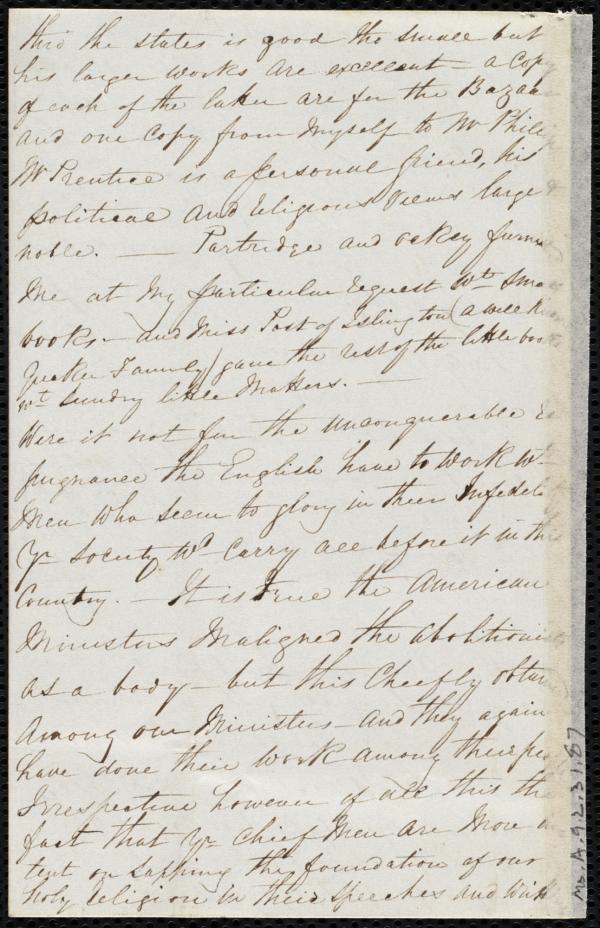 thro the states is good tho small but
his larger works are excellent - a Copy
of each of the latter are for the Bazaar
and one Copy from myself to Mr Philip
Mr Prentice is a personal friend, his
political and religious views large &
noble. — Partridge and Oakey furni
me at my particular request wth sma
books. - and Miss Post of Islington (a well
Quaker Family) gave the rest of the little books
wt sundry little matters. —
Were it not for the unconquerable re
pugnance the English have to work wth
Men who seem to glory in their Infideli
Yr Society wd carry all before it in this
Country. - It is true the American
Ministers Maligned the abolitionis
as a body - but this Cheefly obtain
Among our Ministers - and they again
have done their work among their
Irrespective however of all this the
fact that Yr chief Men are More in
tent on sapping the foundation of our
holy religion in their speeches and
Ms.A.9.2.31.87